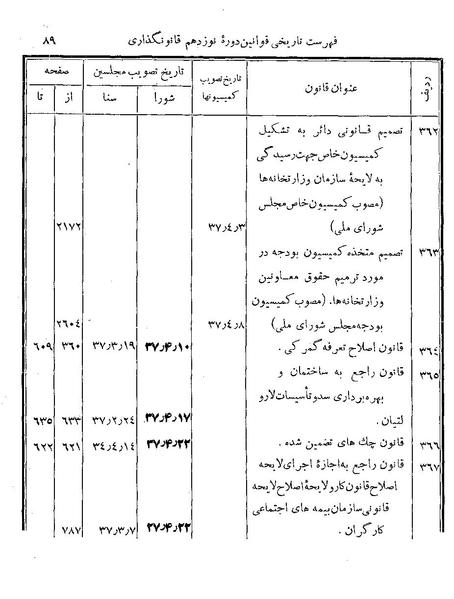 فهرست تاریخی قوانین دورهٔ نوزدهم قانونگذاری ۸۹
ردیف عنوان قانون تاریخ تصویب کمیسیونها تاریخ تصویب مجلسین صفحه
شورا سنا از تا
۳۶۲ تصمیم قانونی دائر به تشکیل
کمیسیون خاص جهت رسیدگی
به لایحهٔ سازمان وزارتخانه‌ها
(مصوب کمیسیون خاص مجلس
شورای ملی) ۳۷٫۴٫۳ ۲۱۷۲
۳۶۳ تصمیم متخذه کمیسیون بودجه در
مورد ترمیم حقوق معاونین
وزارتخانه‌ها. (مصوب کمیسیون
بودجه مجلس شورای ملی) ۳۷٫۴٫۸ ۲۶۰۴
۳۶۴ قانون اصلاح تعرفه گمرکی. ۳۷٫۴٫۱۰ ۳۷٫۳٫۱۹ ۳۶۰ ۶۰۹
۳۶۵ قانون راجع به ساختمان و
بهره برداری سد و تأسیسات لار و
لتیان. ۳۷٫۴٫۱۷ ۳۷٫۲٫۲۴ ۶۳۳ ۶۳۵
۳۶۶ قانون چك های تضمین شده. ۳۷٫۴٫۲۲ ۳۴٫۴٫۱۴ ۶۲۱ ۶۲۲
۳۶۷ قانون راجع به اجازهٔ اجرای لایحه
اصلاح قانون کار و لایحهٔ اصلاح لایحه
قانونی سازمان بیمه های اجتماعی
کارگران. ۲۷٫۴٫۲۲ ۳۷٫۳٫۷ ۷۸۷